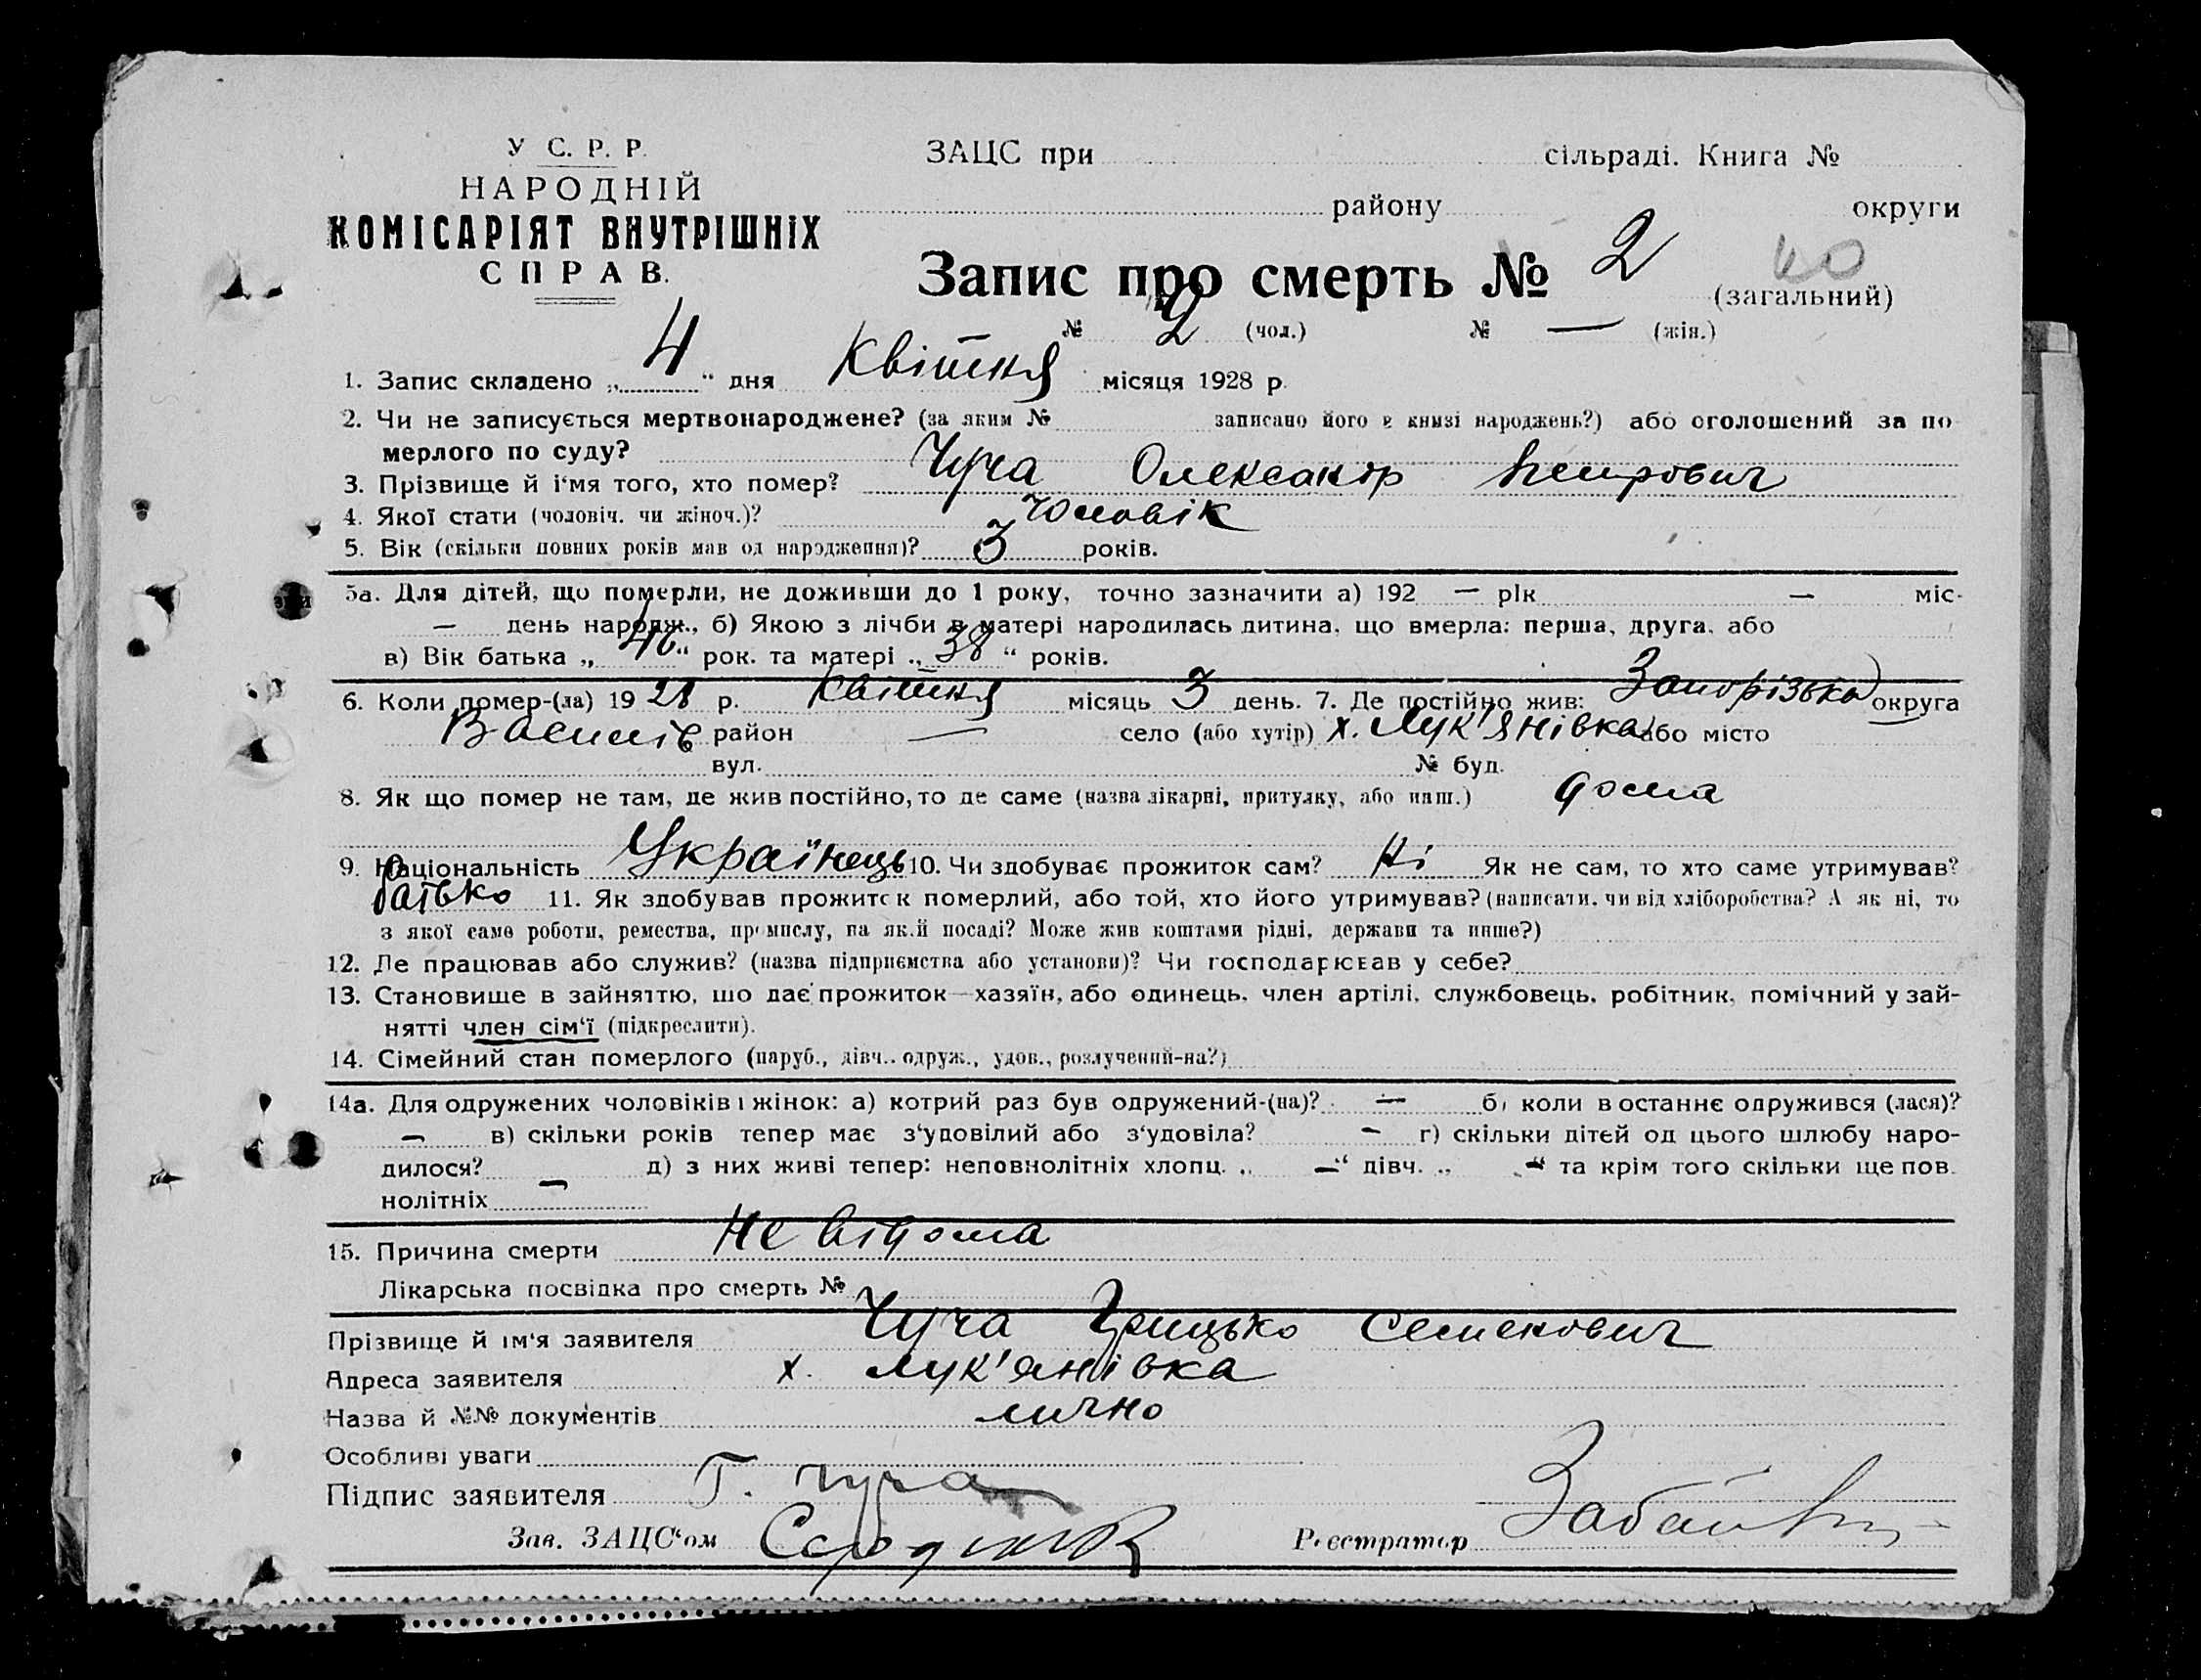 У С. Р. Р.
НАРОДНІЙ
КОМІСАРІЯТ ВНУТРІШНІХ
СПРАВ.
ЗАЦС при сільраді. Книга №
району округи
Запис про смерть № 2 (загальний)
№ 2 (чол.) № — (жін.)
1. Запис складено „ 4 “ дня Квітня місяця 1928 р.
2. Чи не записується мертвонароджене? (за яким № записано його в книзі народжень?) або оголошений за по
мерлого по суду?
3. Прізвище й і‘мя того, хто помер? Чуча Олександр Петрович
4. Якої стати (чоловіч. чи жіноч.)? Чоловік
5. Вік (скільки повних років мав од народження)? 3 років.
5а. Для дітей, що померли, не доживши до 1 року, точно зазначити а) 192 — рік — міс-
— день народж., б) Якою з лічби в матері народилась дитина, що вмерла: перша, друга, або
в) Вік батька „ 40 “ рок. та матері „ 38 “ років.
6. Коли помер-(ла) 19 28 р. Квітня місяць 3 день. 7. Де постійно жив: Запорізька округа
Василів район — село (або хутір) х. Лук'янівка або місто
вул. № буд.
8. Як що помер не там, де жив постійно, то де саме (назва лікарні, притулку, або инш.) дома
9. Національність Українець 10. Чи здобуває прожиток сам? Ні Як не сам, то хто саме утримував?
батько 11. Як здобував прожиток померлий, або той, хто його утримував? (написати, чи від хліборобства? А як ні, то
з якої саме роботи, ремества, промислу, на якій посаді? Може жив коштами рідні, держави та инше?)
12. Де працював або служив? (назва підприємства або установи)? Чи господарював у себе?
13. Становище в зайняттю, що дає прожиток—хазяїн, або одинець, член артілі, службовець, робітник, помічний у зай-
нятті член сім‘ї (підкреслити).
14. Сімейний стан померлого (паруб., дівч., одруж., удов., розлучений-на?)
14а. Для одружених чоловіків і жінок: а) котрий раз був одружений-(на)? — б) коли в останнє одружився (лася)?
— в) скільки років тепер має з‘удовілий або з‘удовіла? — г) скільки дітей од цього шлюбу наро-
дилося? — д) з них живі тепер: неповнолітніх хлопц. „ —“ дівч. „ —“ та крім того скільки ще пов.
нолітніх
15. Причина смерти Не відома
Лікарська посвідка про смерть №
Прізвище й ім‘я заявителя Чуча Грицько Семенович
Адреса заявителя х. Лук'янівка
Назва й №№ документів лично
Особливі уваги
Підпис заявителя Г. Чуча
Зав. ЗАЦС‘ом Реєстратор